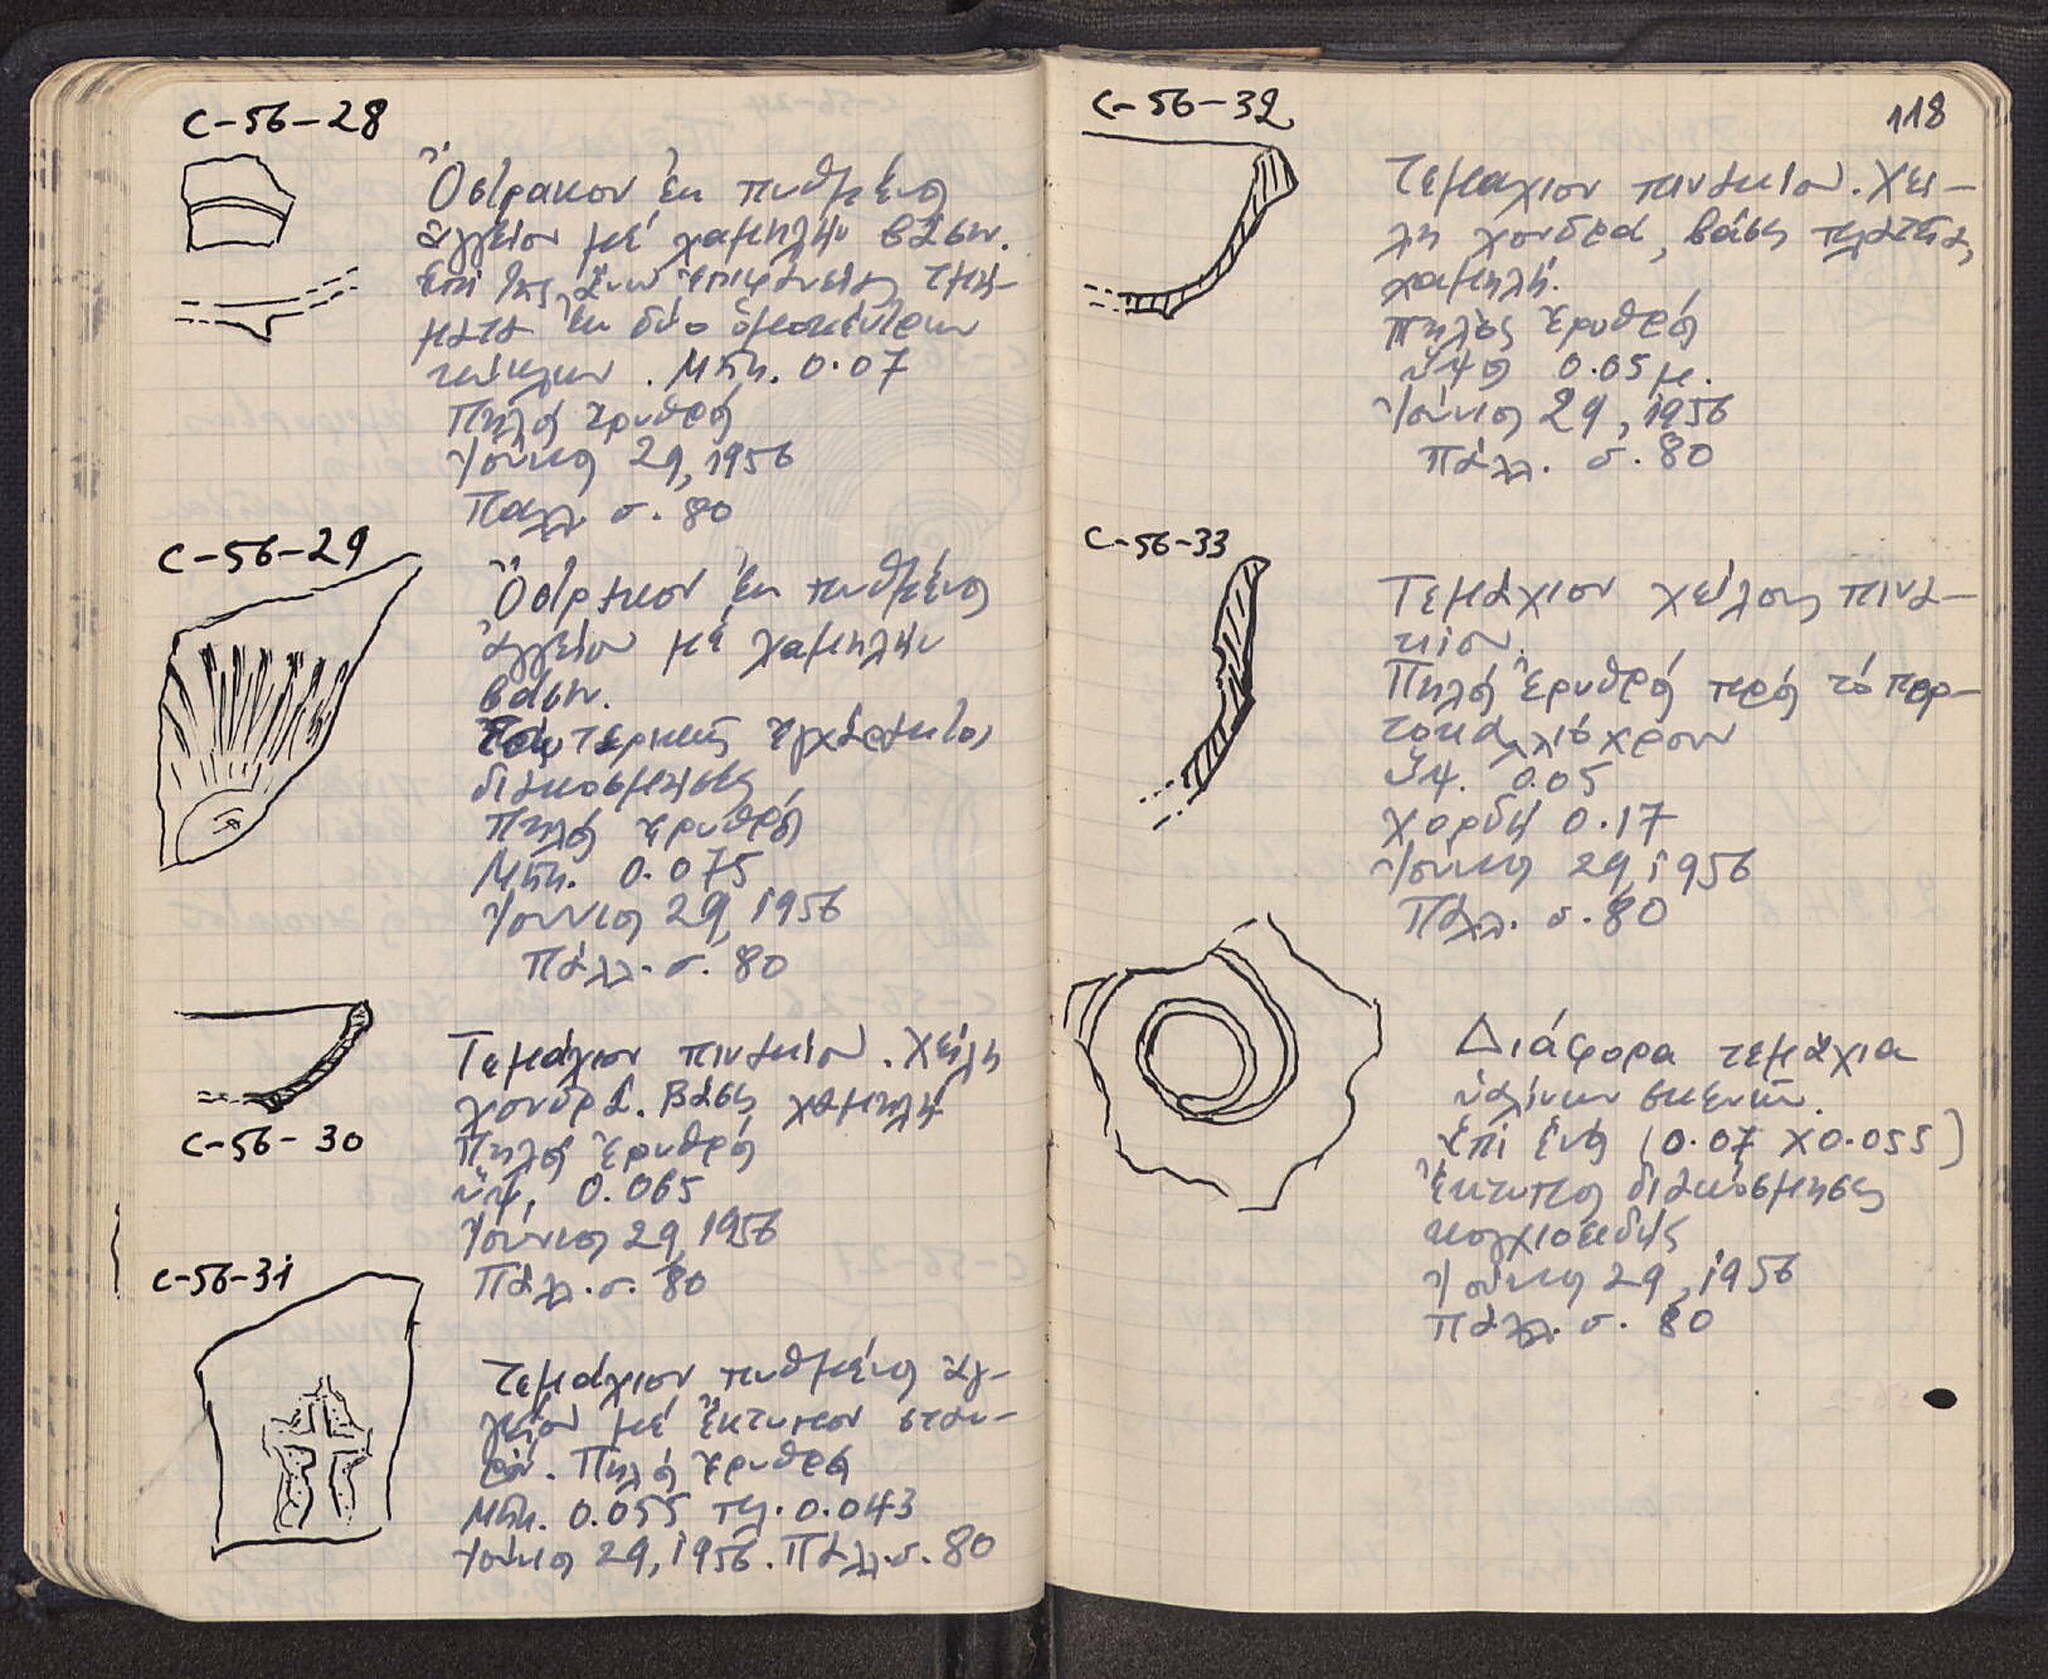 C-56-28
Ὄστρακον ἐκ πυθμένος
ἀγγείου μέ χαμηλήν βάσιν.
Ἐπί τῆς ἄνω ἐπιφανείας τμή-
ματα ἐκ δύο ὁμοκέντρων
κύκλων. Μῆκ. 0.07
Πηλός ἐρυθρός
Ἰούνιος 29, 1956
Παλλ. σ. 80
C-56-29
Ὄστρακον ἐκ πυθμένος
ἀγγείου μέ χαμηλήν
βάσιν.
Ἐσωτερικῶς ἐγχάρακτος
διακόσμησις
Πηλός ἐρυθρός
Μῆκ. 0.075
Ἰούνιος 29, 1956
Πάλλ. σ. 80
Τεμάχιον πινακίου. Χείλη
χονδρά. Βάσις χαμηλή
C-56-30
Πηλός ἐρυθρός
ὕψ. 0.065
Ἰούνιος 29, 1956
Πάλλ. σ. 80
C-56-31
Τεμάχιον πυθμένος ἀγ-
γείου μέ ἔκτυπον σταυ-
ρόν. Πηλός ἐρυθρός
Μῆκ. 0.055 πλ. 0.043
Ἰούνιος 29, 1956. Πάλλ. σ. 80
118
C-56-32
Τεμαχιον πινακίου. Χεί-
λη χονδρά, βάσις πλατεῖα,
χαμηλή.
Πηλὸς ἐρυθρός
ὕψος 0.05 μ.
Ἰούνιος 29, 1956
Πάλλ. σ. 80
C-56-33
Τεμάχιον χείλους πινα-
κίου.
Πηλός ἐρυθρός πρός τό πορ-
τοκαλλιόχρουν
ὕψ. 0.05
χορδή 0.17
Ἰούνιος 29, 1956
Πάλλ. σ. 80
Διάφορα τεμάχια
ὑαλίνων σκευῶν.
Ἐπί ἑνός (0.07 Χ 0.055)
ἔκτυπος διακόσμησις
κογχιοειδής
Ἰούνιος 29, 1956
Πάλλ. σ. 80